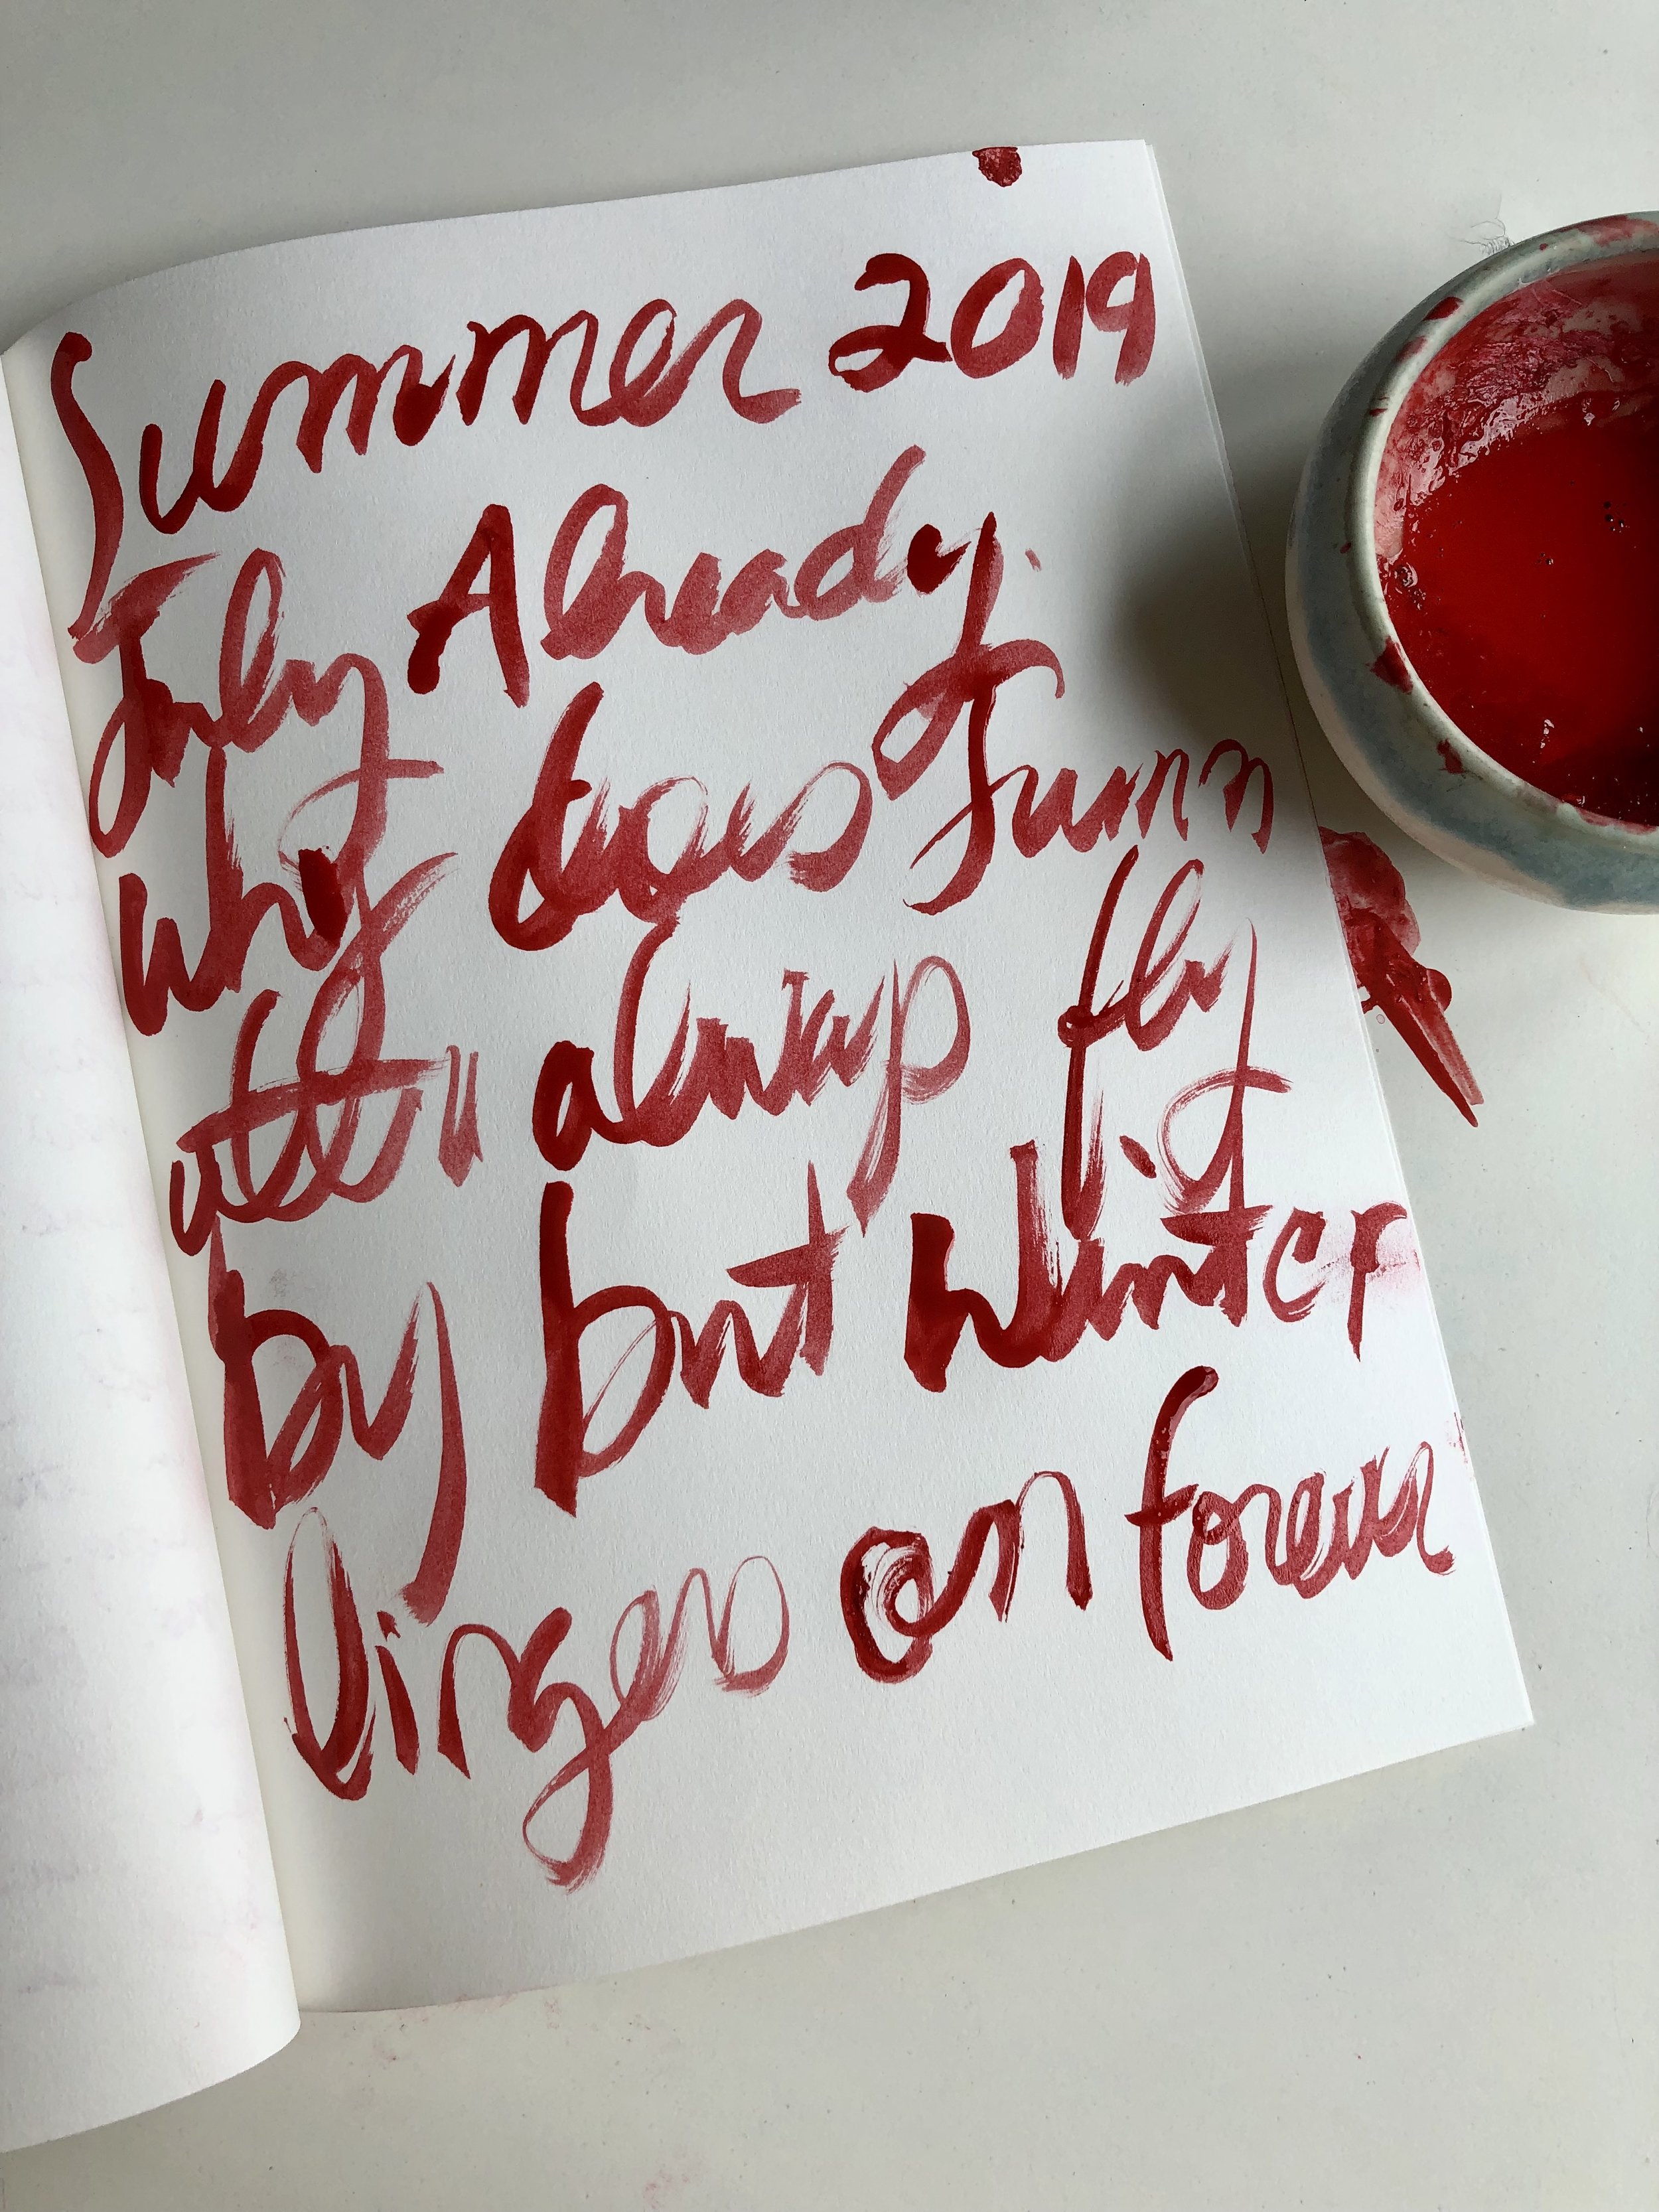 Summer 2019
July Already.
Why does Summ
always fly
by but Winter
lingers on forever